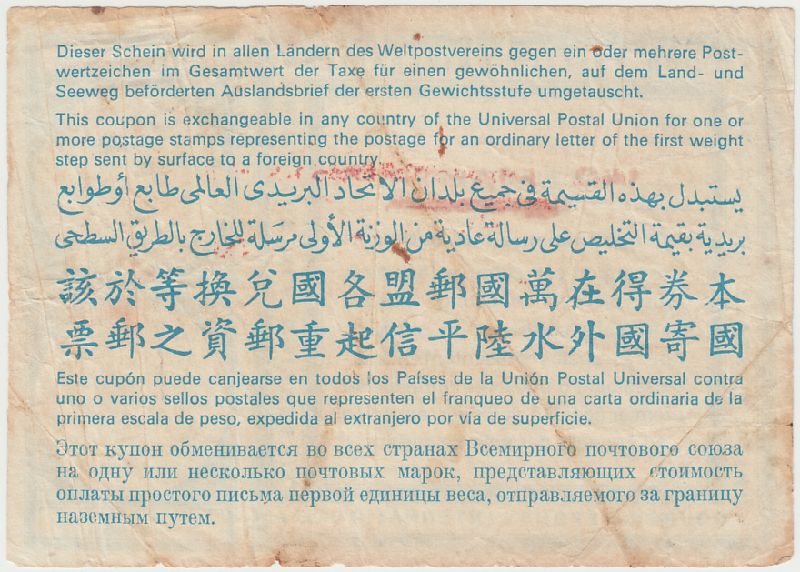 Dieser Schein wird in allen Ländern des Weltpostvereins gegen ein oder mehrere Post-
wertzeichen im Gesamtwert der Taxe für einen gewöhnlichen, auf dem Land- und
Seeweg beförderten Auslandsbrief der ersten Gewichtsstufe umgetauscht.
This coupon is exchangeable in any country of the Universal Postal Union for one or
more postage stamps representing the postage for an ordinary letter of the first weight
step sent by surface to a foreign country.
يستبدل بهذه القسيمة فى جميع بلدان الاتحاد البريدى العالمى طابع أو طوابع
بريدية بقيمة التخليص على رسالة عادية من الوزنة الأولى مرسلة للخارج بالطريق السطحى
本券得在萬國郵盟各國兌換等於該
國寄國外水陸平信起重郵資之郵票
Este cupón puede canjearse en todos los Países de la Unión Postal Universal contra
uno o varios sellos postales que representen el franqueo de una carta ordinaria de la
primera escala de peso, expedida al extranjero por vía de superficie.
Этот купон обменивается во всех странах Всемирного почтового союза
на одну или несколько почтовых марок, представляющих стоимость
оплаты простого письма первой единицы веса, отправляемого за границу
наземным путем.